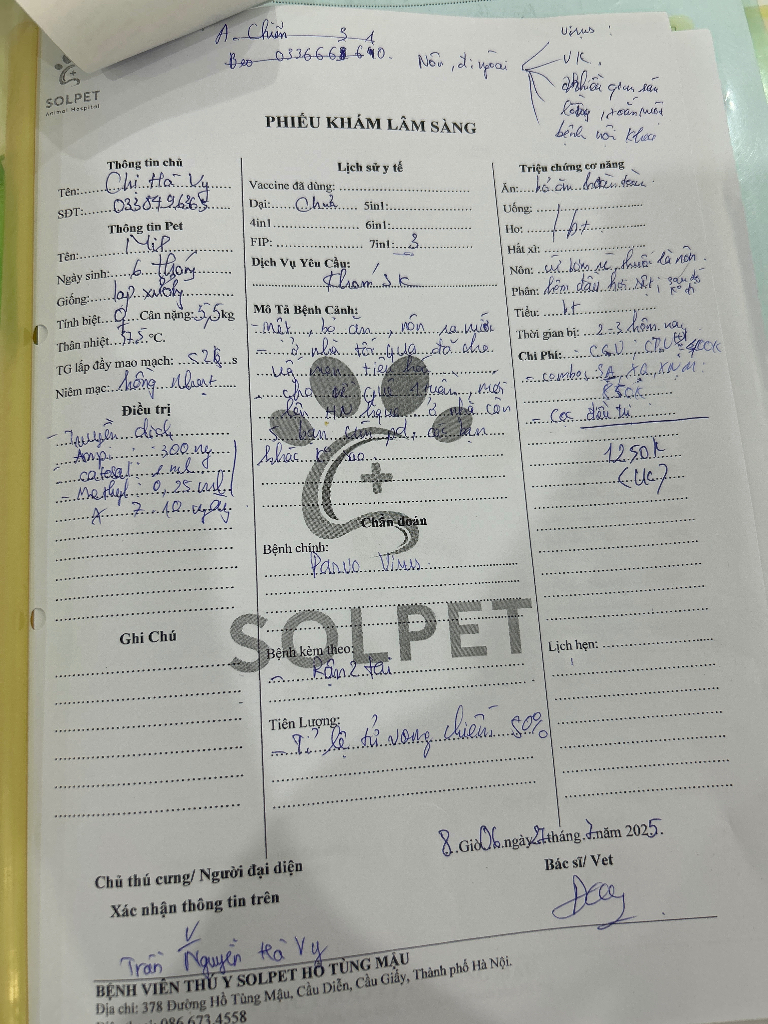 A. Chiến 3 1
Beo 0336668 640.
Nôn, đi ngoài
Virus:
VK.
bệnh nội khoa
SOLPET
Animal Hospital
PHIẾU KHÁM LÂM SÀNG
Thông tin chủ
Tên: Chị Hà Vy
SĐT: 033
Thông tin Pet
Tên: Mip
Ngày sinh: 6 tháng
Giống: lạp xưởng
Tính biệt ♀ Cân nặng: 5,5kg
Thân nhiệt °C.
TG lấp đầy mao mạch: <2s s
Niêm mạc: hồng nhạt
Điều trị
- Truyền dịch
Ampi: 300 mg
- catosal: ml
- Methyl: 0,25 ml
7 - 10 ngày
Ghi Chú
Lịch sử y tế
Vaccine đã dùng:
Dại: Chưa 5in1:
4in1 6in1:
FIP: 7in1: 3
Dịch Vụ Yêu Cầu:
Khám SK
Mô Tả Bệnh Cảnh:
- mệt, bỏ ăn, nôn ra nước
- ở nhà tối qua đã cho
- cho về quê 1 tuần, mới
lên HN hqua, ở nhà còn
5 bạn cùng
khác
Chẩn đoán
Bệnh chính:
Parvo Virus
SOLPET
Bệnh kèm theo:
- Rận 2 tai
Tiên Lượng:
- Tỉ lệ tử vong chiếm 50%
Triệu chứng cơ năng
Ăn: bỏ ăn hoàn toàn
Uống:
Ho: bt
Hắt xì:
Nôn:
Phân: hôm đầu hơi nát;
Tiểu: bt
Thời gian bị: 2-3 hôm nay
Chi Phí: CGV; CPV(+) 400K
- combo: SA, XQ, XNM:
850K
- Cọc điều trị
1250K
(UC)
Lịch hẹn:
8 Giờ 06 ngày 27 tháng 7 năm 2025.
Chủ thú cưng/ Người đại diện
Bác sĩ/ Vet
Xác nhận thông tin trên
V
Trần Nguyễn Hà Vy
BỆNH VIỆN THÚ Y SOLPET HỒ TÙNG MẬU
Địa chỉ: 378 Đường Hồ Tùng Mậu, Cầu Diễn, Cầu Giấy, Thành phố Hà Nội.
086.673.4558